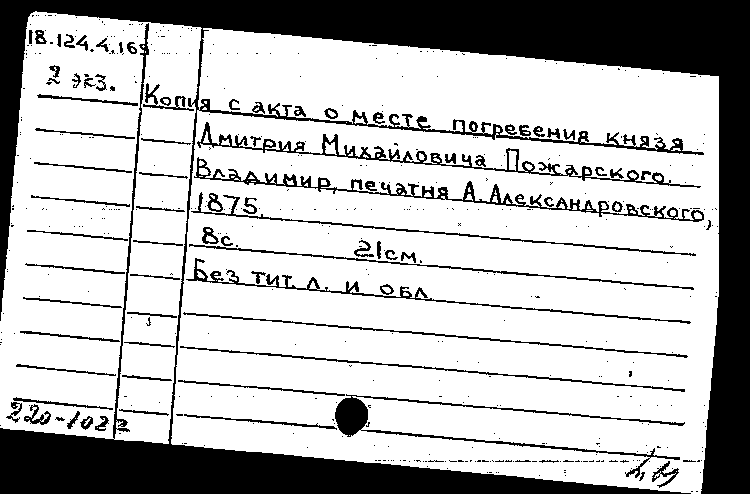 18.124.4.169
2 экз.
Копия с акта о месте погребения князя
Дмитрия Михайловича Пожарского.
Владимир, печатня А. Александровского,
1875.
8с. 21см.
Без тит. л. и обл.